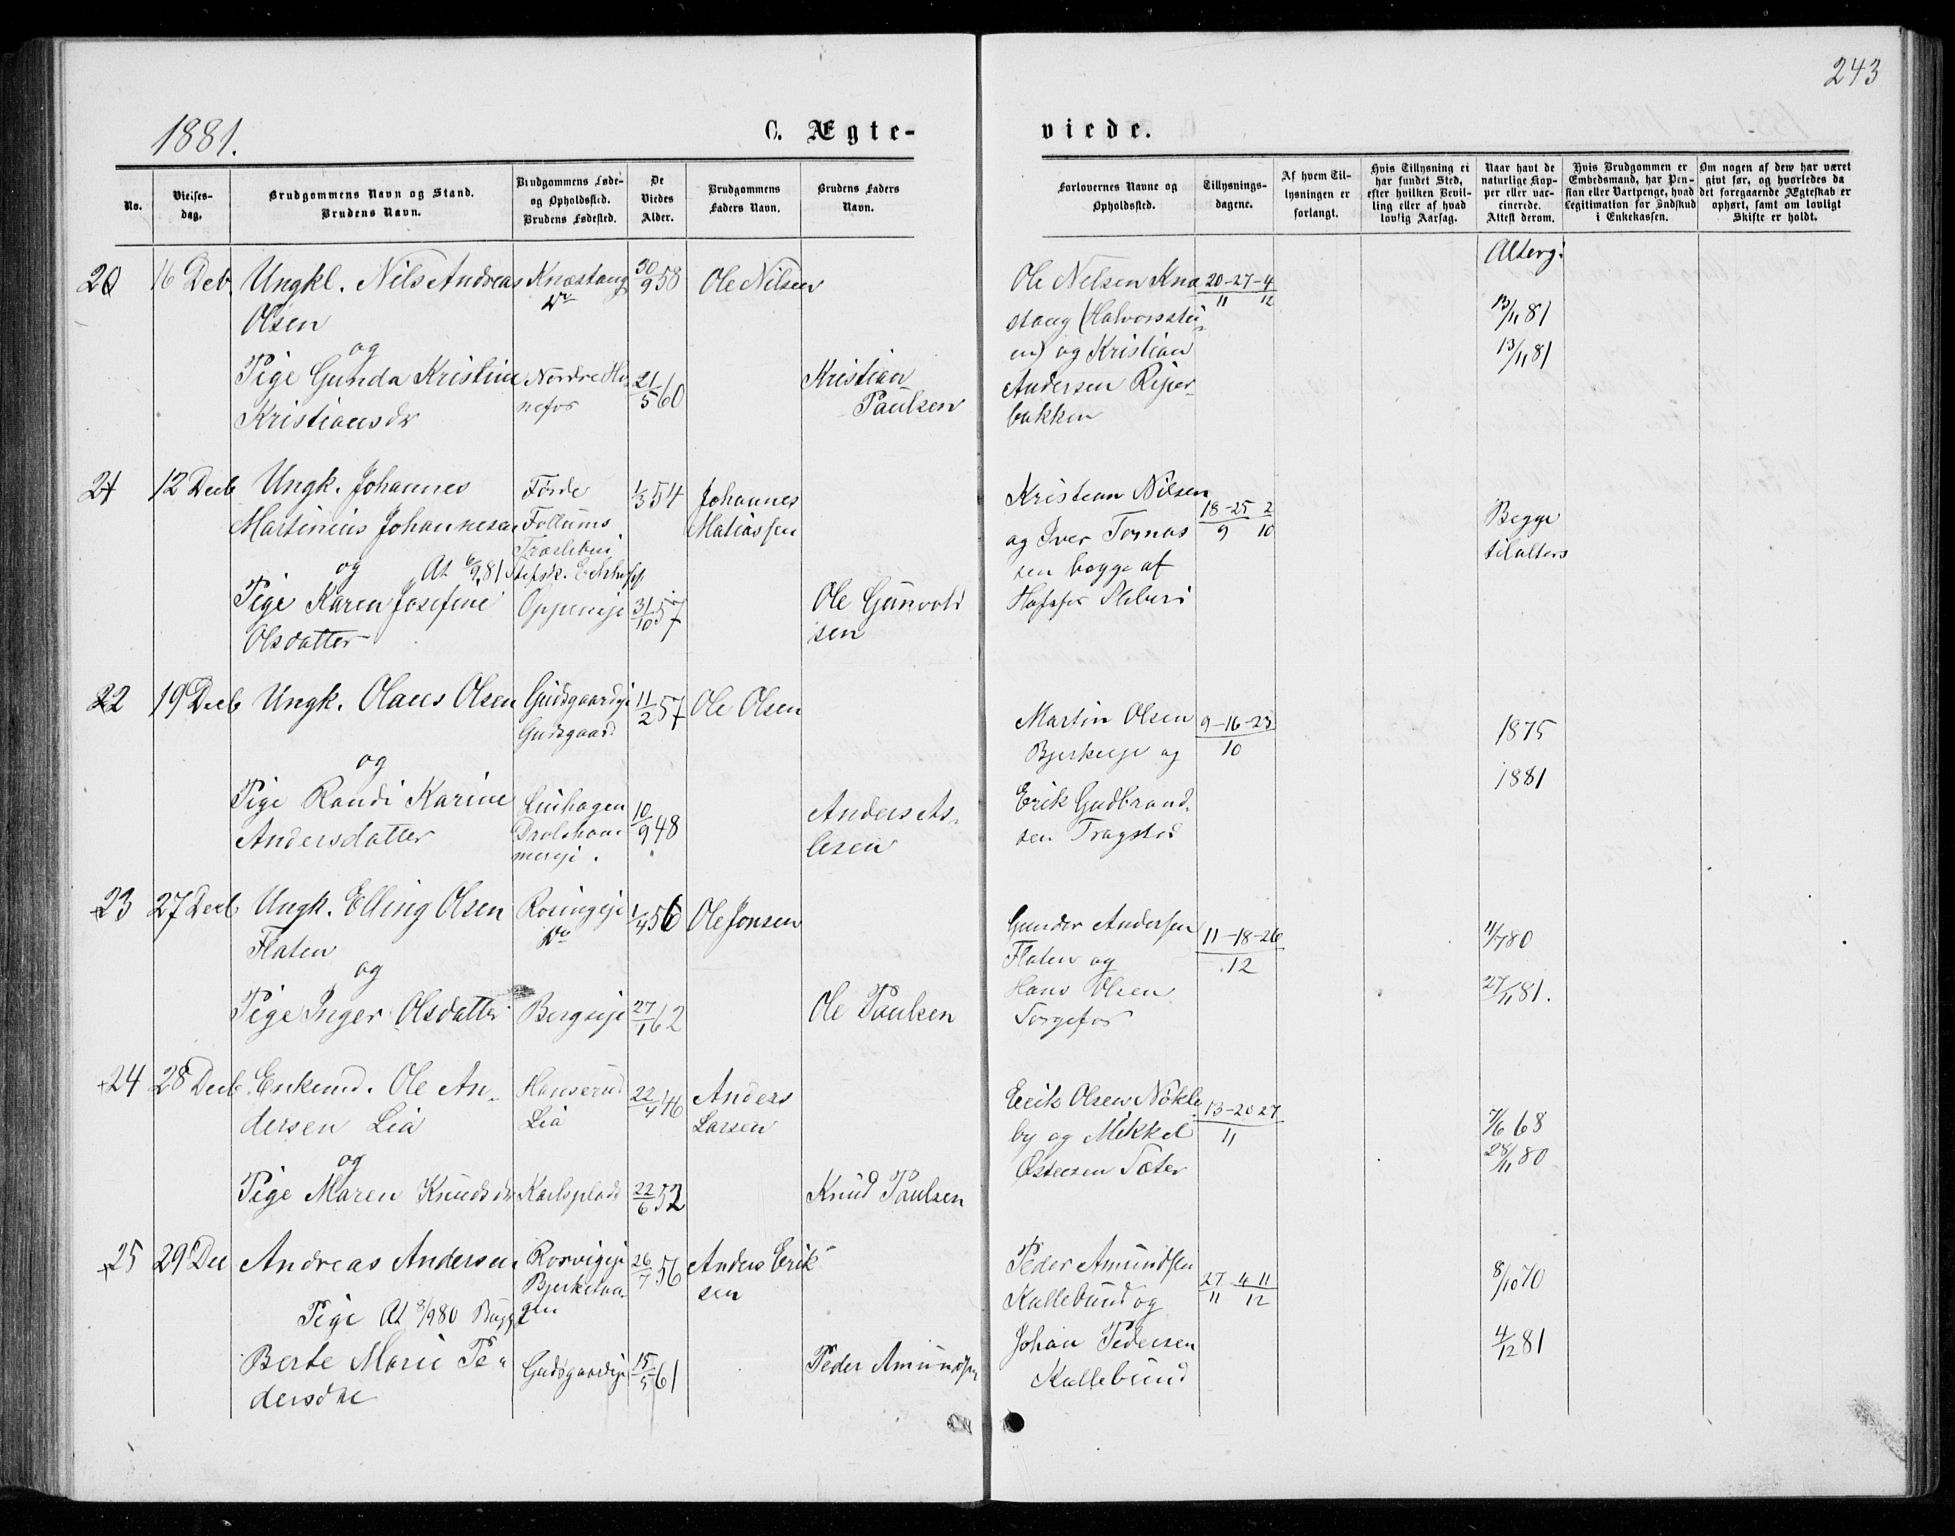 243
1881.
C. Ægte-
viede.
No.
Vielses-
dag.
Brudgommens Navn og Stand.
Brudens Navn.
Brudgommens Føde-
og Opholdssted.
Brudens Fødested.
De
Viedes
Alder.
Brudgommens
Faders Navn.
Brudens Faders
Navn.
Forlovernes Navne og
Opholdssted.
Tillysnings-
dagene.
Af hvem Til-
lysningen er
forlangt.
Hvis Tillysning ei
har fundet Sted,
efter hvilken Bevil-
ling eller af hvad
lovlig Aarsag.
Naar havt de
naturlige Kop-
per eller vac-
cinerede.
Attest derom.
Hvis Brudgommen er
Embedsmand, har Pen-
sion eller Vartpenge, hvad
Legitimation for Indskud
i Enkekassen.
Om nogen af dem har været
givt før, og hvorledes da
det foregaaende Ægteskab er
ophørt, samt om lovligt
Skifte er holdt.
20 16 Deb. Ungkl. Nils Andreas Knæstang 30/9 58 Ole Nilsen
Olsen Do
og
Pige Gunda Kristine Nordre Hø 21/5 60 Kristian
Kristiansdr nefos Paulsen
Ole Nilsen Knæ 20-27-4
stang (Halvorsstu 11 12
en) og Kristian
Andersen Riper
bakken
Alterg.
13/11 81
13/11 81
21 12 Decb Ungk. Johannes Førde 1/3 54 Johannes
Martinius Johannesen Follums Matiassen
Træsliberi
og At 6/9 81
Pige Karen Josefine Oppeneje 31/10 57 Ole Gunvold
Olsdatter sen
Kristian Nilsen 18-25 2
og Iver Tomas 9 10
sen begge af
Hofsfos Sliberi
Begge
til alters
22 19 Decb Ungk. Olaus Olsen Gudsgaardeje 11/2 57 Ole Olsen
Gudsgaard
og
Pige Randi Karine 10/9 48 Anders As
Andersdatter lesen
mereje.
Martin Olsen 9-16-23
Bjerkeeje og 10
Erik Gudbrand
sen Tragstad
1875
1881
23 27 Decb Ungk. Elling Olsen Rosingeje 1/4 56 Ole Jonsen
Flaten Do
og
Pige Inger Olsdatter Bergseje 27/1 62 Ole Paulsen
Gunder Andersen 11-18-26
Flaten og 12
Hans Olsen
4/7 80
27/11 81.
24 28 Decb Enkemd. Ole An- Hanserud 22/4 46 Anders
dersen Lia Lia Larsen
og
Pige Maren Knudsdr Karlsplads 22/6 52 Knud Paulsen
Erik Olsen Nökle 13-20 27
by og Mikkel 11
Østensen Sæter
7/6 68
28/11 80
25 29 Dec Andreas Andersen Rosvigeje 26/7 56 Anders Erik
sen
Pige At 8/9 80
Berte Marie Pe- Gudsgaardeje 15/5 61 Peder Amundsen
Peder Amundsen 27 4 11
Kullebund og 11 12
Johan Pedersen
Kullebund
8/10 70
4/12 81